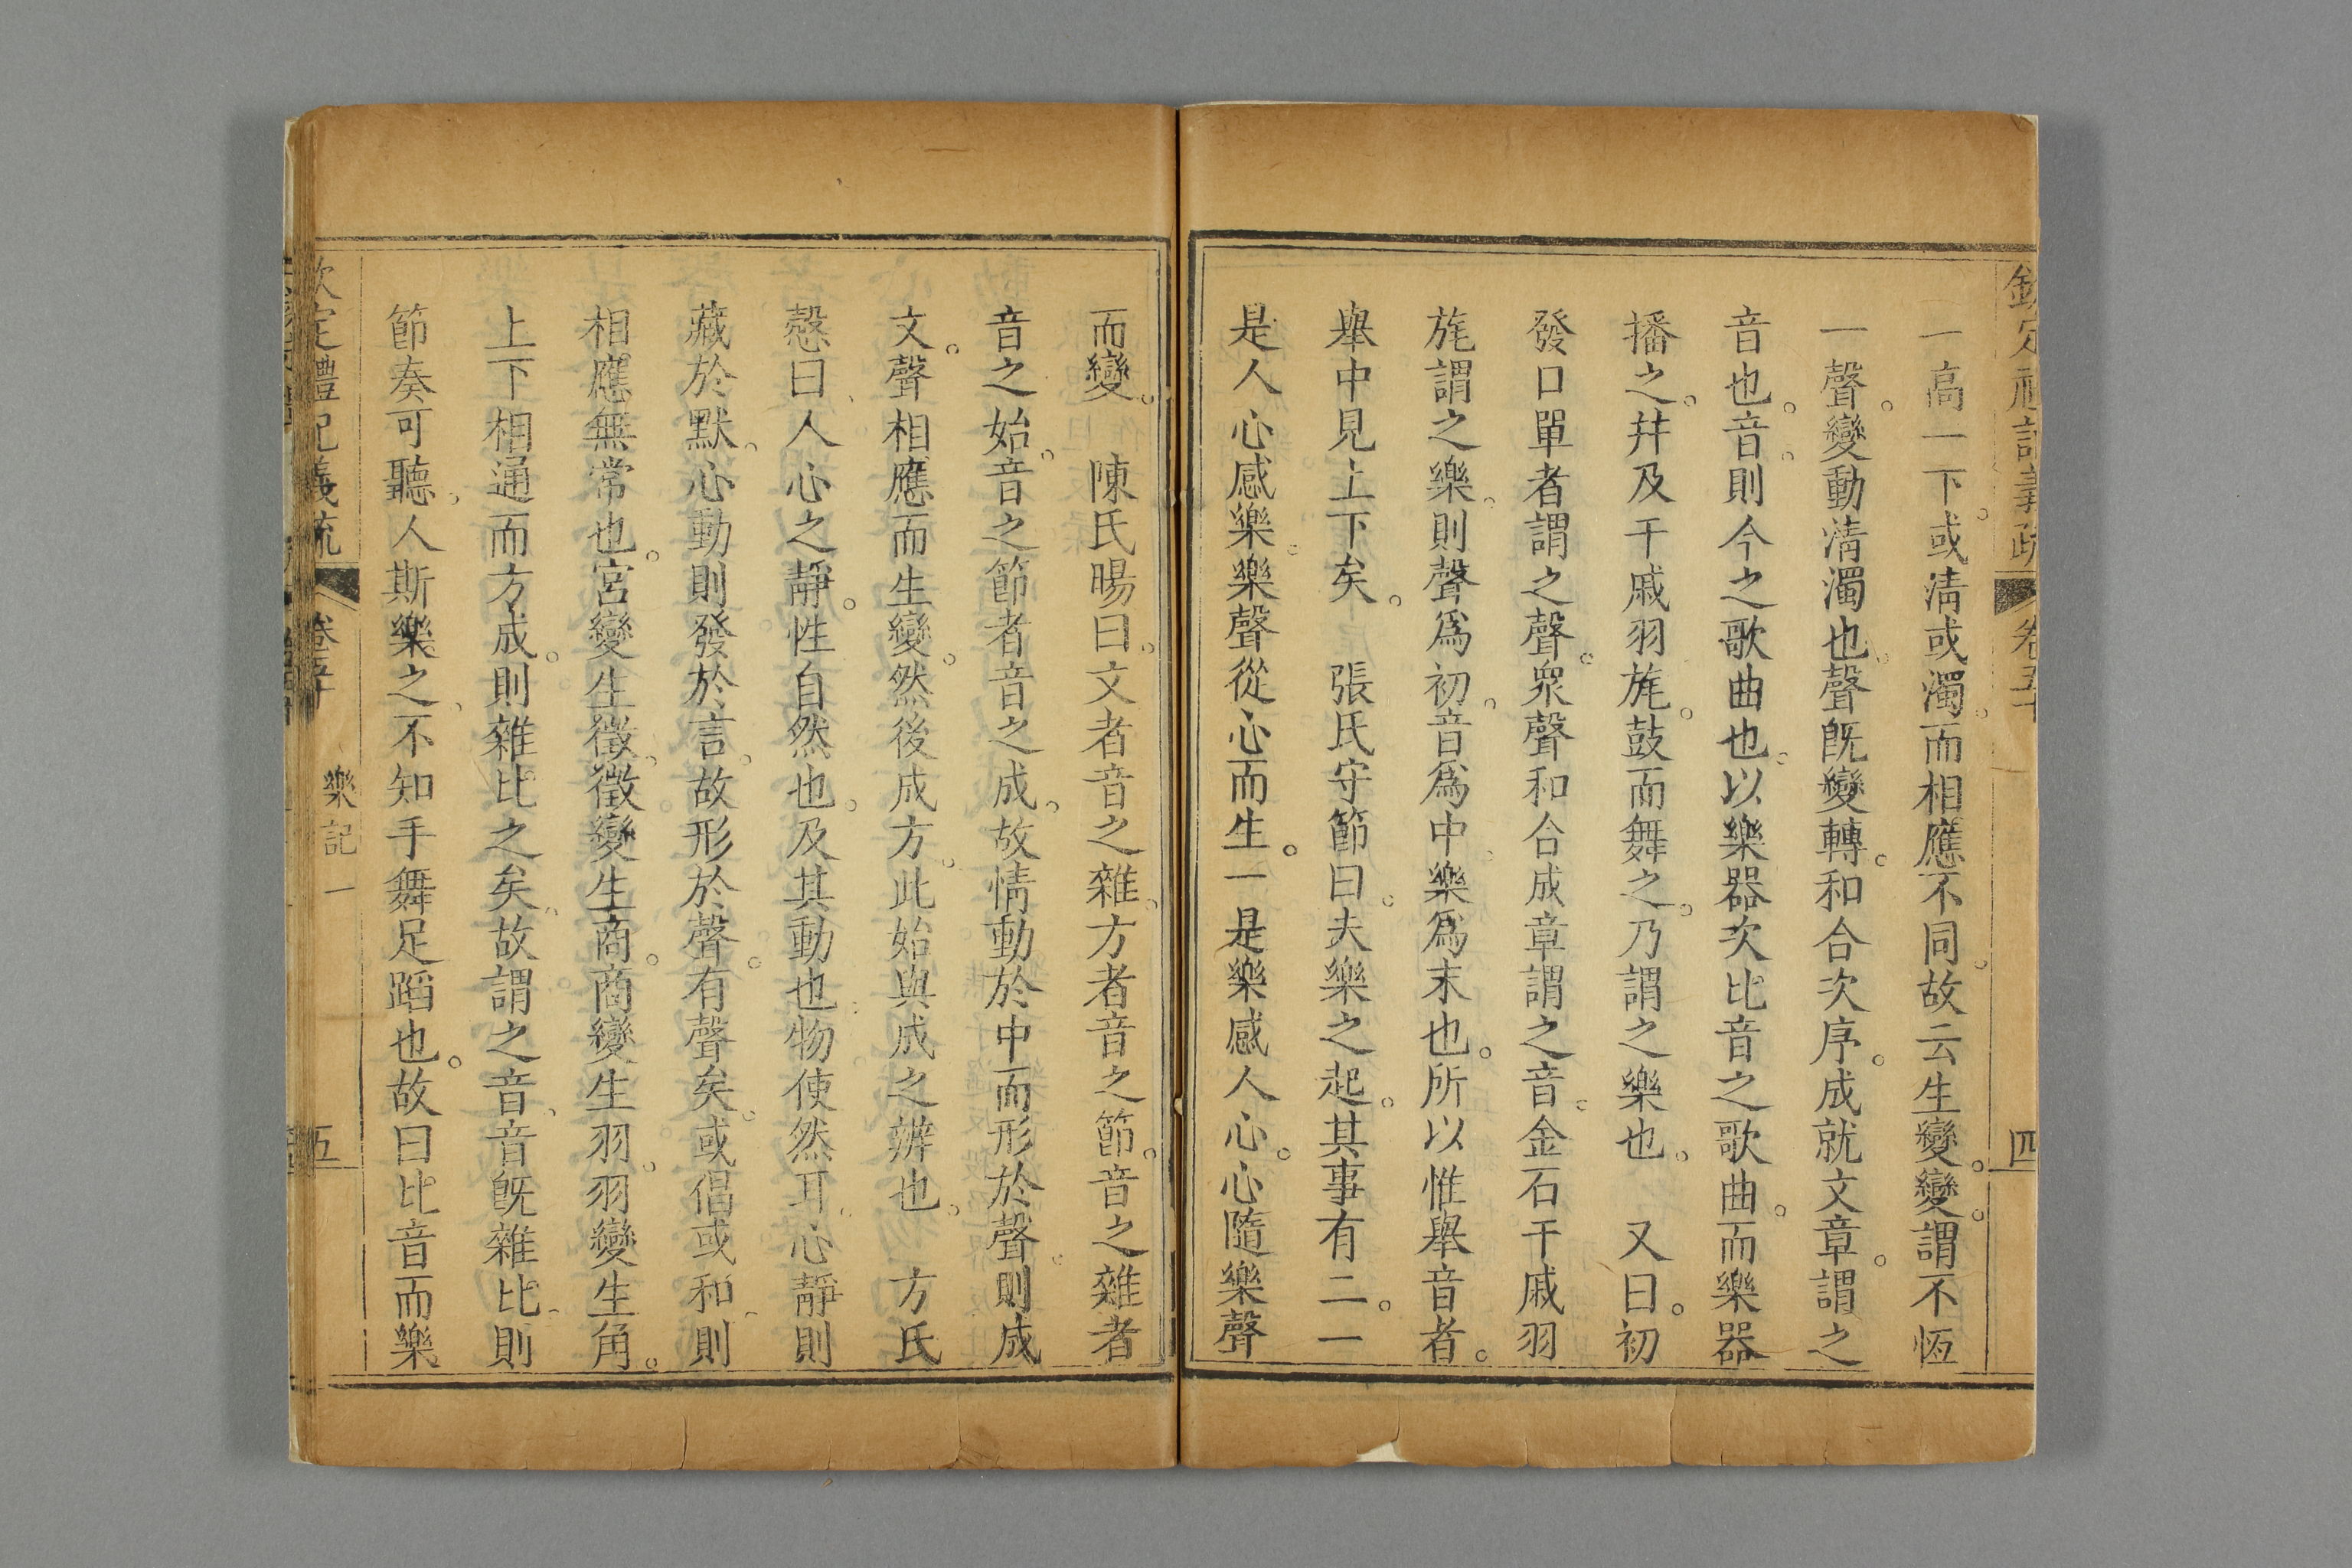 欽定禮記義疏 卷五十 四
一高一下。或淸或濁。而相應不同。故云生變。變。謂不恆
一聲。變動淸濁也。聲旣變轉。和合次序。成就文章。謂之
音也。音。則今之歌曲也。以樂器次比音之歌曲。而樂器
播之。幷及干戚羽旄。鼓而舞之。乃謂之樂也。 又曰。初
發口單者謂之聲。衆聲和合成章謂之音。金石干戚羽
旄謂之樂。則聲爲初。音爲中。樂爲末也。所以惟舉音者。
舉中見上下矣。 張氏守節曰。夫樂之起。其事有二。一
是人心感樂。樂聲從心而生。一是樂感人心。心隨樂聲
而變。 陳氏暘曰。文者音之雜。方者音之節。音之雜者
音之始。音之節者音之成。故情動於中而形於聲。則成
文。聲相應而生變。然後成方。此始與成之辨也。 方氏
慤曰。人心之靜。性自然也。及其動也。物使然耳。心靜則
藏於默。心動則發於言。故形於聲。有聲矣。或倡或和。則
相應無常也。宮變生徵。徵變生商。商變生羽。羽變生角。
上下相通而方成。則雜比之矣。故謂之音。音旣雜比。則
節奏可聽。人斯樂之。不知手舞足蹈也。故曰比音而樂
欽定禮記義疏 卷五十 樂記一 五